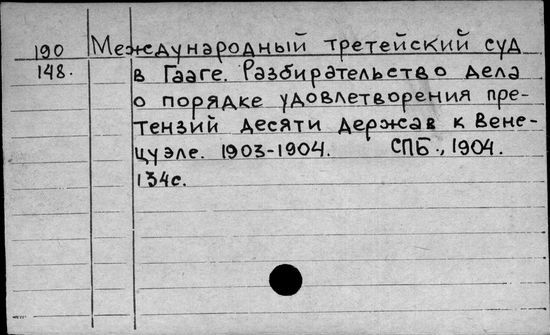 190 Международный третейский суд
148. в Гааге. Разбирательство дела
о порядке удовлетворения пре-
тензий десяти держав к Вене-
цуэле. 1903-1904. СПБ., 1904.
134с.